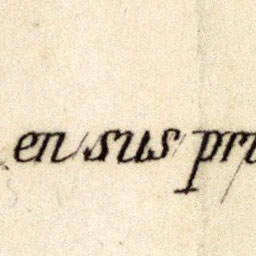 en sus pri